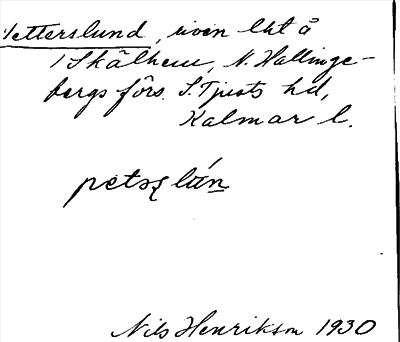 Petterslund, riven lht å
1 Skälhem, N. Hallinge-
bergs förs. S. Tjusts hd,
Kalmar l.
petsʂ lún
Nils Henrikson 1930